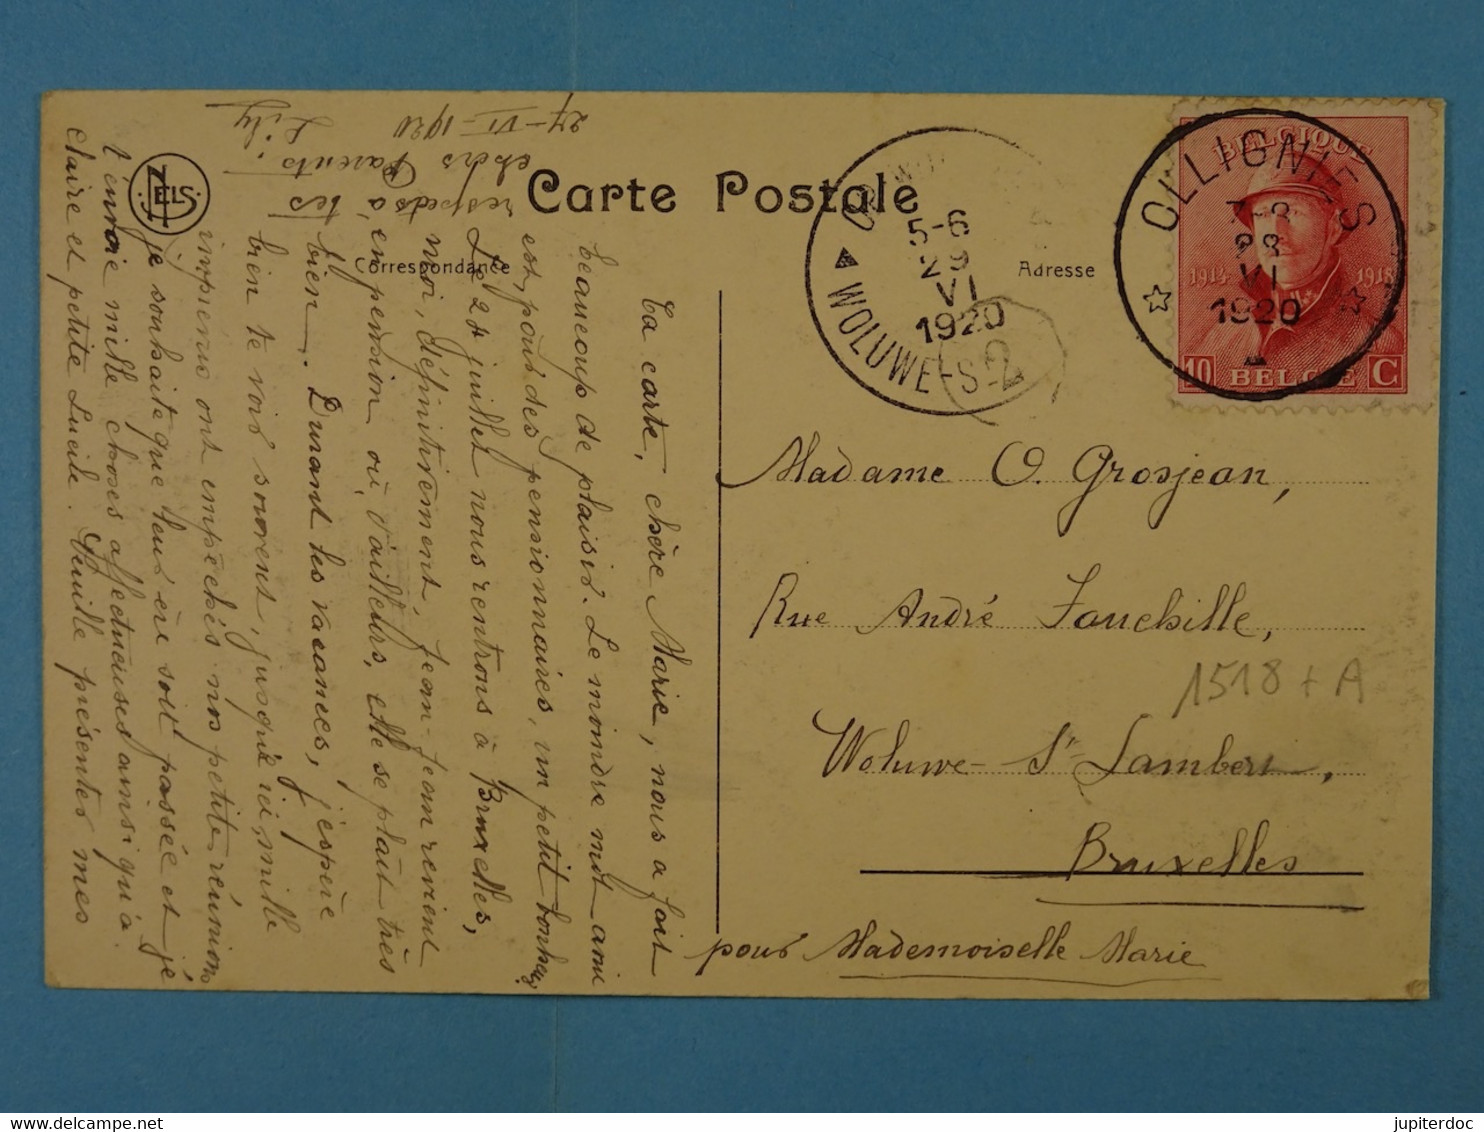 Carte Postale
Correspondance
Adresse
NELS
BELGIQUE
1914 1918
10 BELGIE C
OLLIGNIES
7-8
28
VI
1920
5-6
29
VI
1920
WOLUWE-S
2
Madame O. Grosjean,
Rue André Fauchille,
Woluwe-St Lambert,
Bruxelles
pour Mademoiselle Marie
1518 + A
Ta carte, chère Marie, nous a fait
beaucoup de plaisir. Le moindre mot ami
est, pour des pensionnaires, un petit bonheur
Le 24 juillet nous rentrons à Bruxelles,
moi, définitivement, Jean-Jean revient
en pension où, d'ailleurs, elle se plaît très
bien. Durant les vacances, j'espère
bien te voir souvent, jusqu'ici mille
imprévus ont empêchés nos petites réunions
je souhaite que leur ère soit passée et je
t'envoie mille choses affectueuses ainsi qu'à
Claire et petite Lucile. Veuille présenter mes
respects à tes
chers Parents.
Lily
27-VI-1920
jupiterdoc
delcampe.net